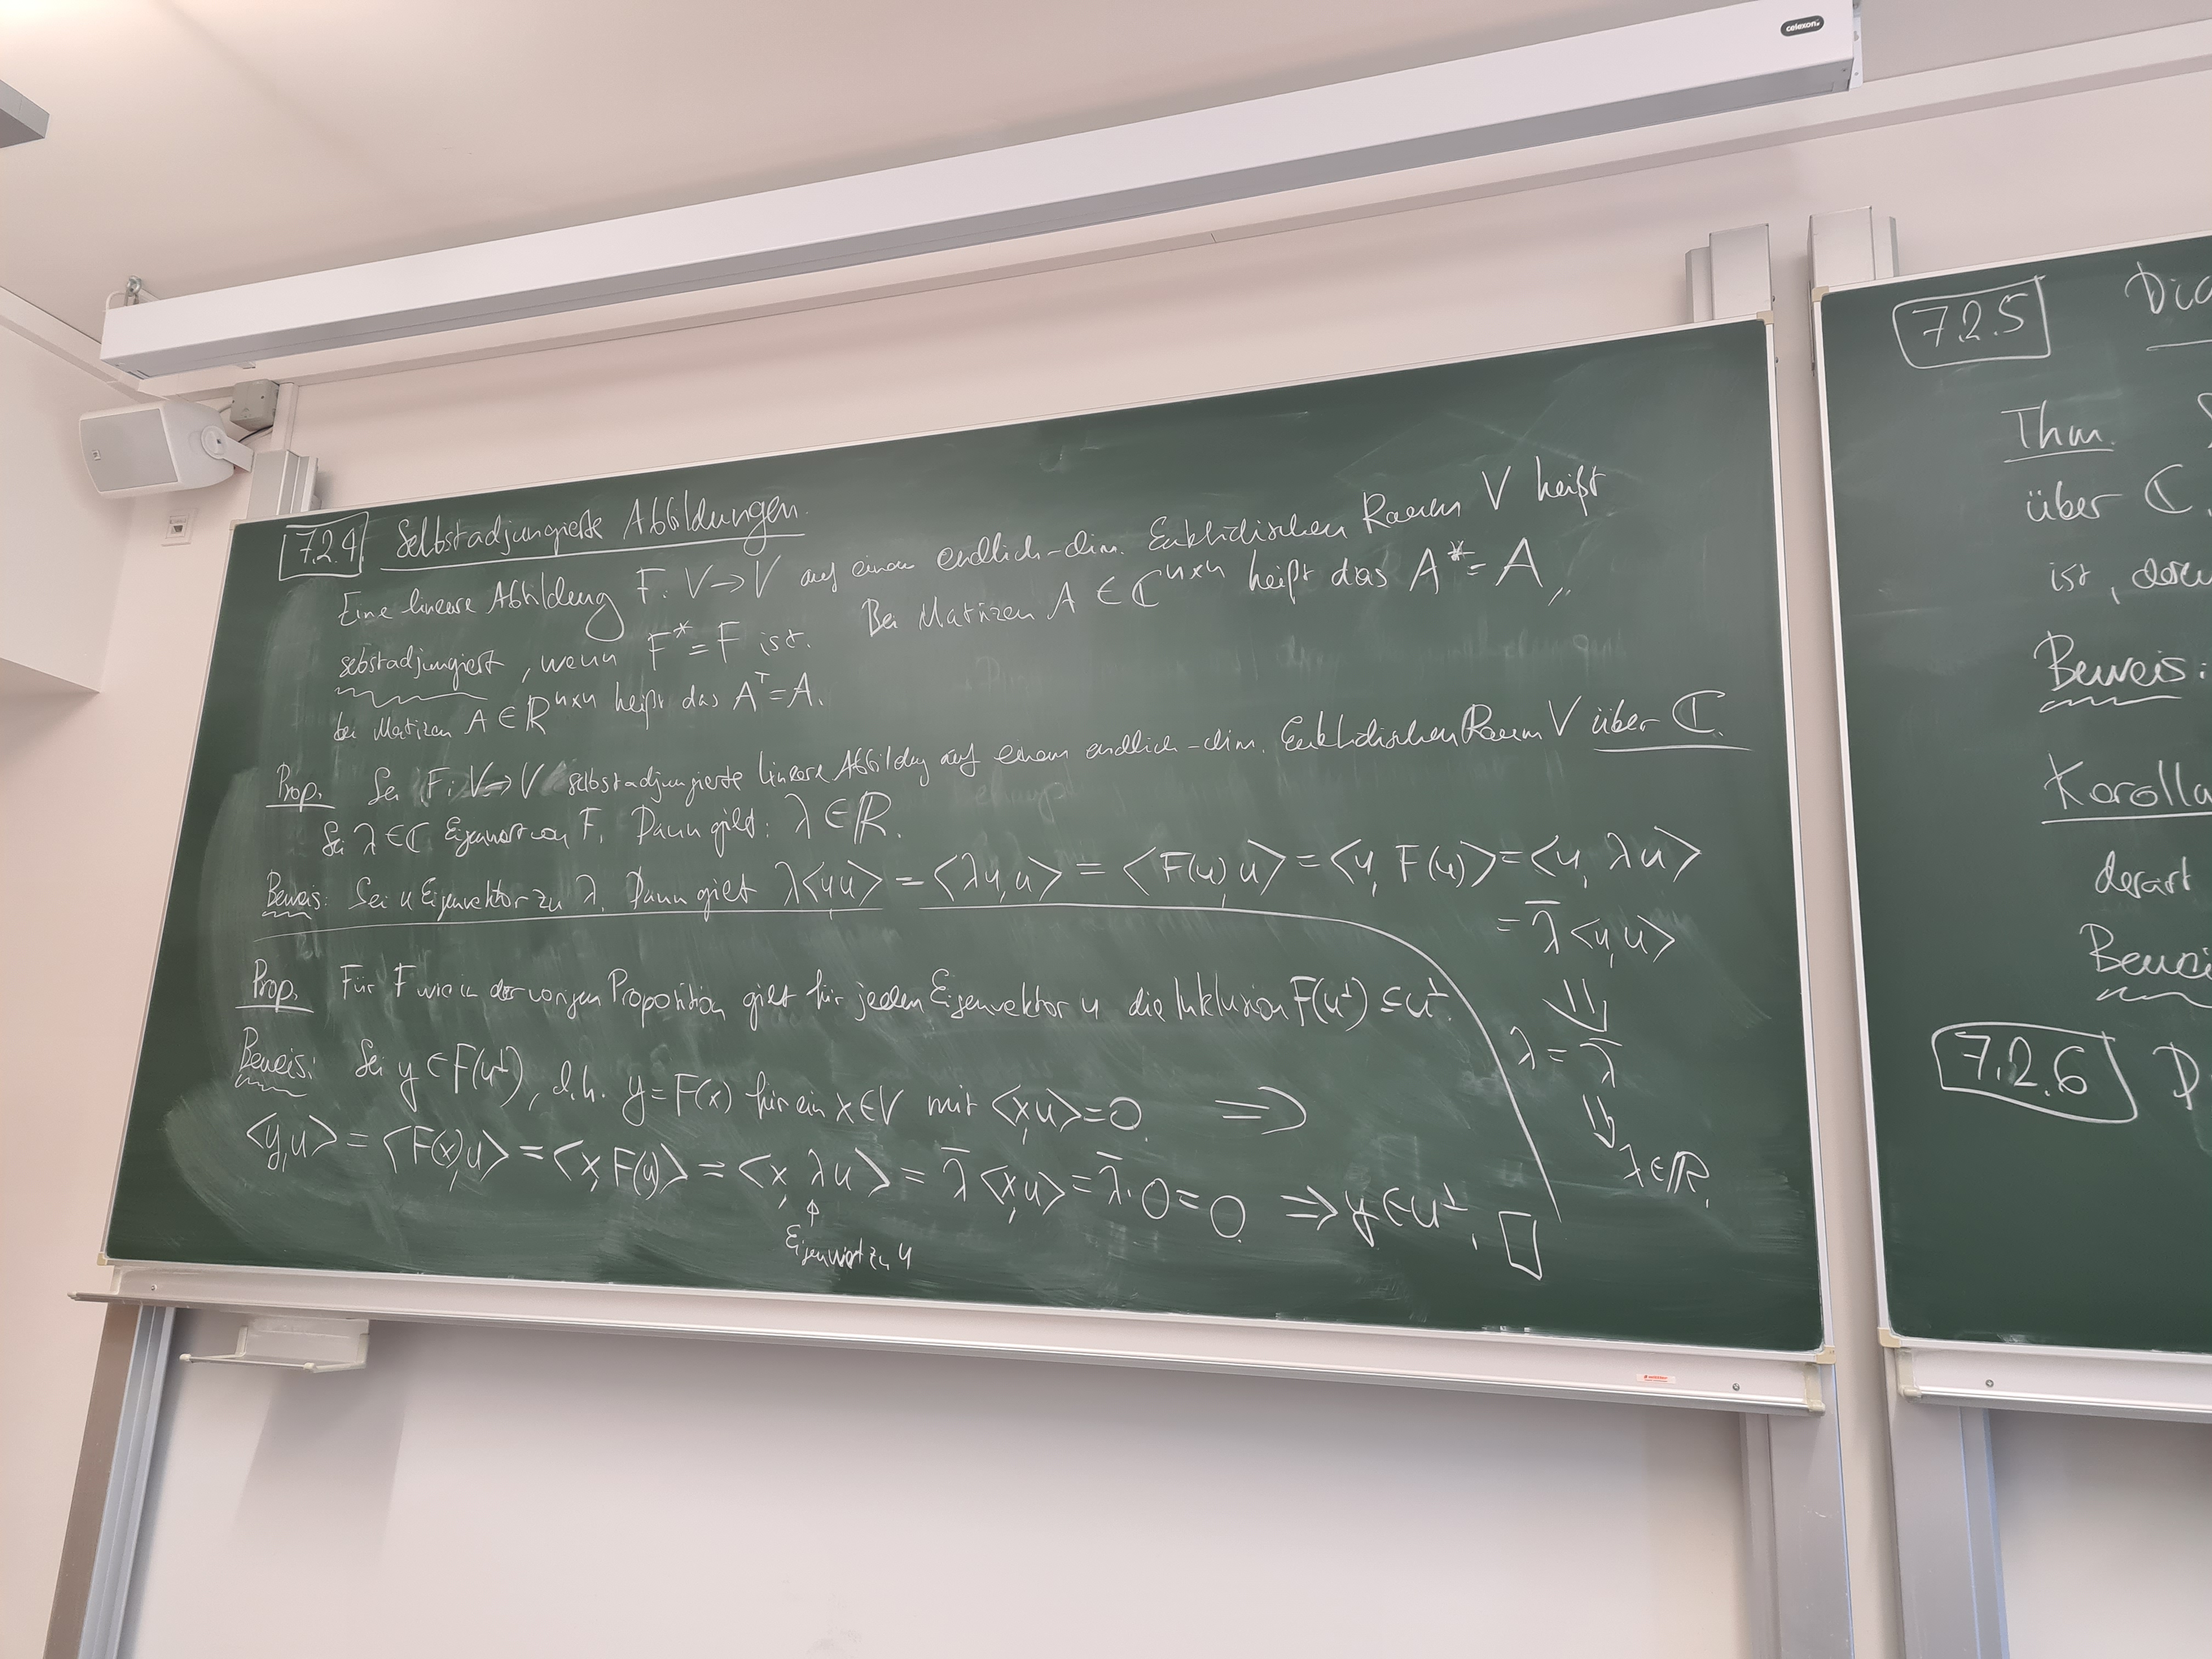 celexon
7.2.4. Selbstadjungierte Abbildungen.
Eine lineare Abbildung F: V → V auf einem endlich-dim. Euklidischen Raum V heißt
sebstadjungiert, wenn F* = F ist. Bei Matrizen A ∈ ℂⁿˣⁿ heißt das A* = A,
bei Matrizen A ∈ ℝⁿˣⁿ heißt das Aᵀ = A.
Prop. Sei F: V → V selbstadjungierte lineare Abbildung auf einem endlich-dim. Euklidischen Raum V über ℂ.
Sei λ ∈ ℂ Eigenwert von F. Dann gilt: λ ∈ ℝ.
Beweis: Sei u Eigenvektor zu λ. Dann gilt λ<u,u> = <λu,u> = <F(u),u> = <u,F(u)> = <u,λu>
= λ̄<u,u>
⇓
λ = λ̄
⇓
λ ∈ ℝ.
Prop. Für F wie in der vorigen Proposition gilt für jeden Eigenvektor u die Inklusion F(u⊥) ⊆ u⊥.
Beweis: Sei y ∈ F(u⊥), d.h. y = F(x) für ein x ∈ V mit <x,u> = 0. ⇒
<y,u> = <F(x),u> = <x,F(u)> = <x,λu> = λ̄<x,u> = λ̄·0 = 0. ⇒ y ∈ u⊥. □
↑
Eigenwert zu u
7.2.5
Thm.
über ℂ.
ist,
Beweis:
Korolla
derart
Bewei
7.2.6